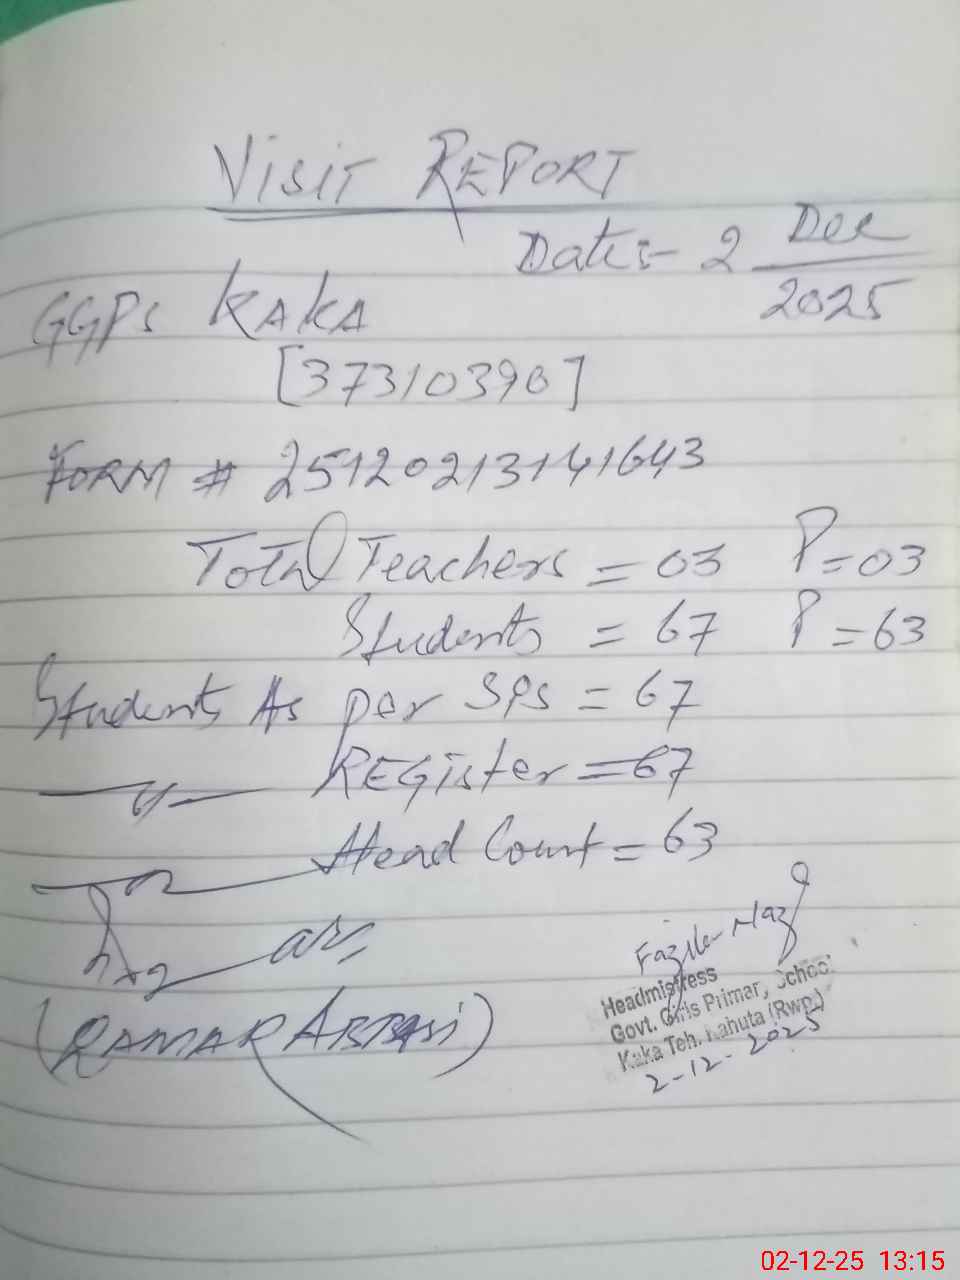 VISIT REPORT
Date:- 2 Dec
2025
GGPS KAKA
[37310390]
FORM # 25120213141643
Total Teachers = 03 P=03
Students = 67 P=63
Students As per SPS = 67
—〃— REGister = 67
—〃— Head Count = 63
(QAMAR ABBASi)
Headmistress
Govt. Girls Primary School
Kaka Teh. Kahuta (Rwp.)
2-12-2025
02-12-25 13:15